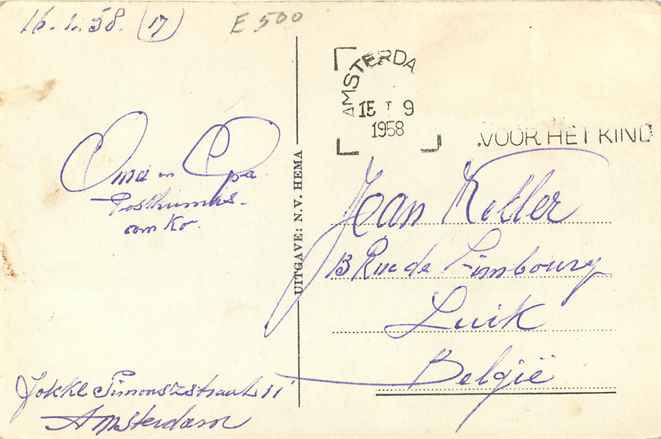 16.1.58. (17)
E 500
AMSTERDA
15 I 9
1958
VOOR HET KIND
Oma en Opa
Posthumus-
om Ko.
UITGAVE: N.V. HEMA
Jean Keller
13 Rue de Limbourg
Luik
België
Simonszstraat 11
Amsterdam